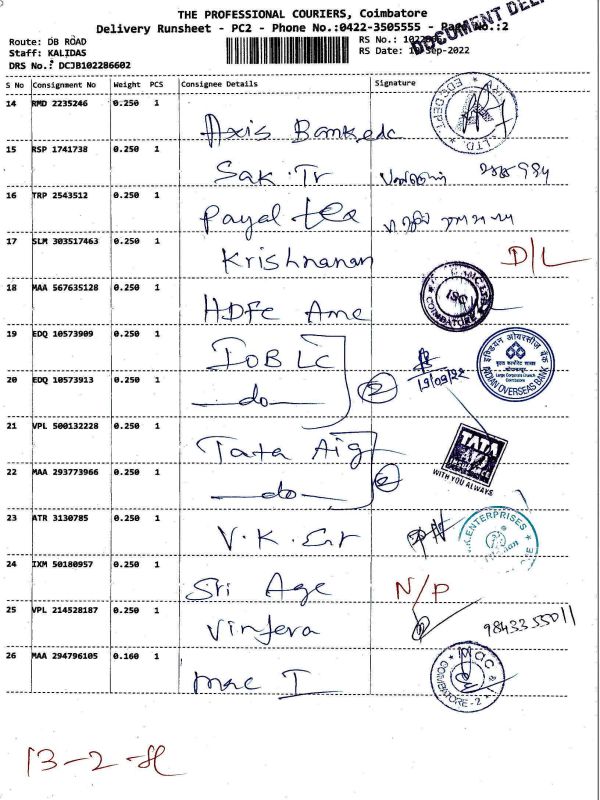 THE PROFESSIONAL COURIERS, Coimbatore
Delivery Runsheet - PC2 - Phone No.:0422-3505555 - Page No.:2
DOCUMENT DEL
Route: DB ROAD
Staff: KALIDAS
DRS No.: DCJB102286602
RS No.:
RS Date: Sep-2022
S No Consignment No Weight PCS Consignee Details Signature
14 RMD 2235246 0.250 1 Axis Bank edc
EDC DEPT.
15 RSP 1741738 0.250 1 Sak. Tr
16 TRP 2543512 0.250 1 Payal tea
17 SLM 303517463 0.250 1 Krishnanan D/L
18 MAA 567635128 0.250 1 HDFC Amc
COIMBATORE ISC
19 EDQ 10573909 0.250 1 IOB LC
20 EDQ 10573913 0.250 1 do 2 19/09/22
इण्डियन ओवरसीज़ बैंक
Large Corporate Branch
Coimbatore
INDIAN OVERSEAS BANK
21 VPL 500132228 0.250 1 Tata Aig
TATA
22 MAA 293773966 0.250 1 do 2
WITH YOU ALWAYS
23 ATR 3130785 0.250 1 V.K. Ent
V.K. ENTERPRISES
24 IXM 50180957 0.250 1 Sri Age N/P
25 VPL 214528187 0.250 1 Vinfera 9843355011
26 MAA 294796105 0.160 1 mac I
COIMBATORE-2
13-2-